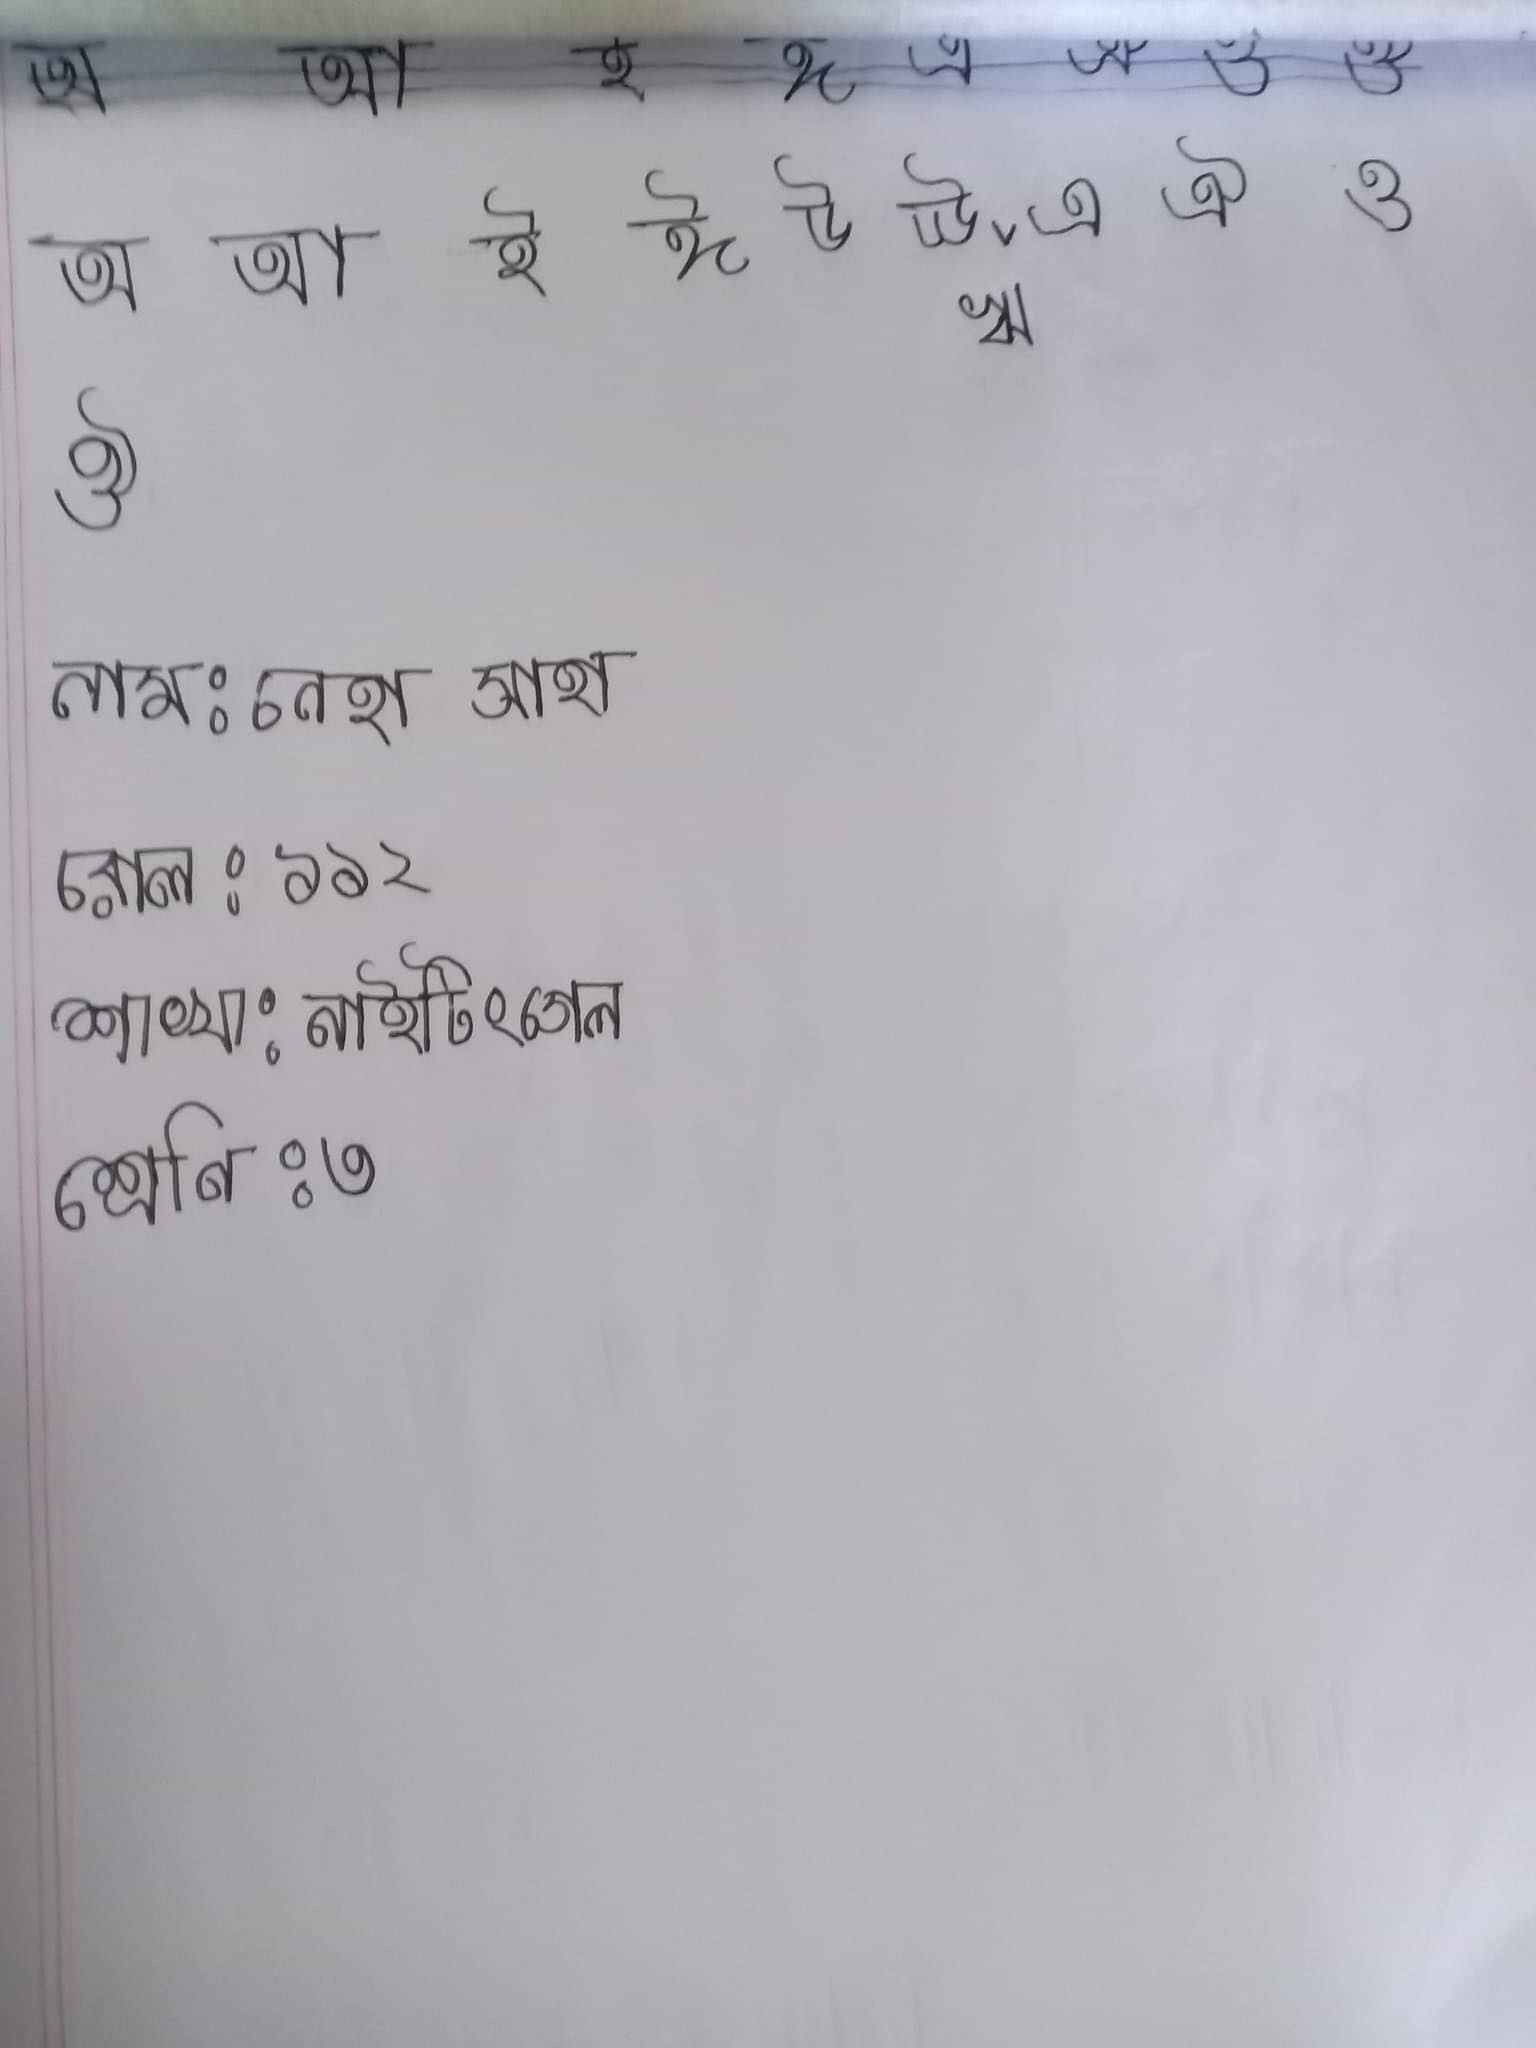 অ আ ই ঈ এ
অ আ ই ঈ উ ঊ এ ঐ ও
ঋ
ঔ
নামঃ নেহা সাহা
রোল ঃ ১১২
শাখাঃ নাইটিংগেল
শ্রেনি ঃ ৩